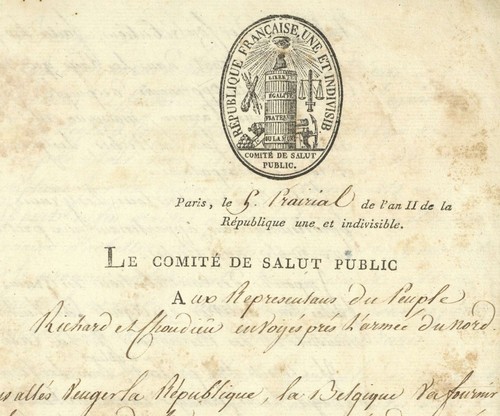 RÉPUBLIQUE FRANÇAISE, UNE ET INDIVISIB
LIBER
ÉGALITÉ
FRATERN
OU LA MORT
COMITÉ DE SALUT
PUBLIC.
Paris, le 5. Prairial de l'an II de la
République une et indivisible.
LE COMITÉ DE SALUT PUBLIC
Aux Représentans du Peuple
Richard et Choudieu envoyés près L'armée du nord
allés venger la République, la Belgique va fournir